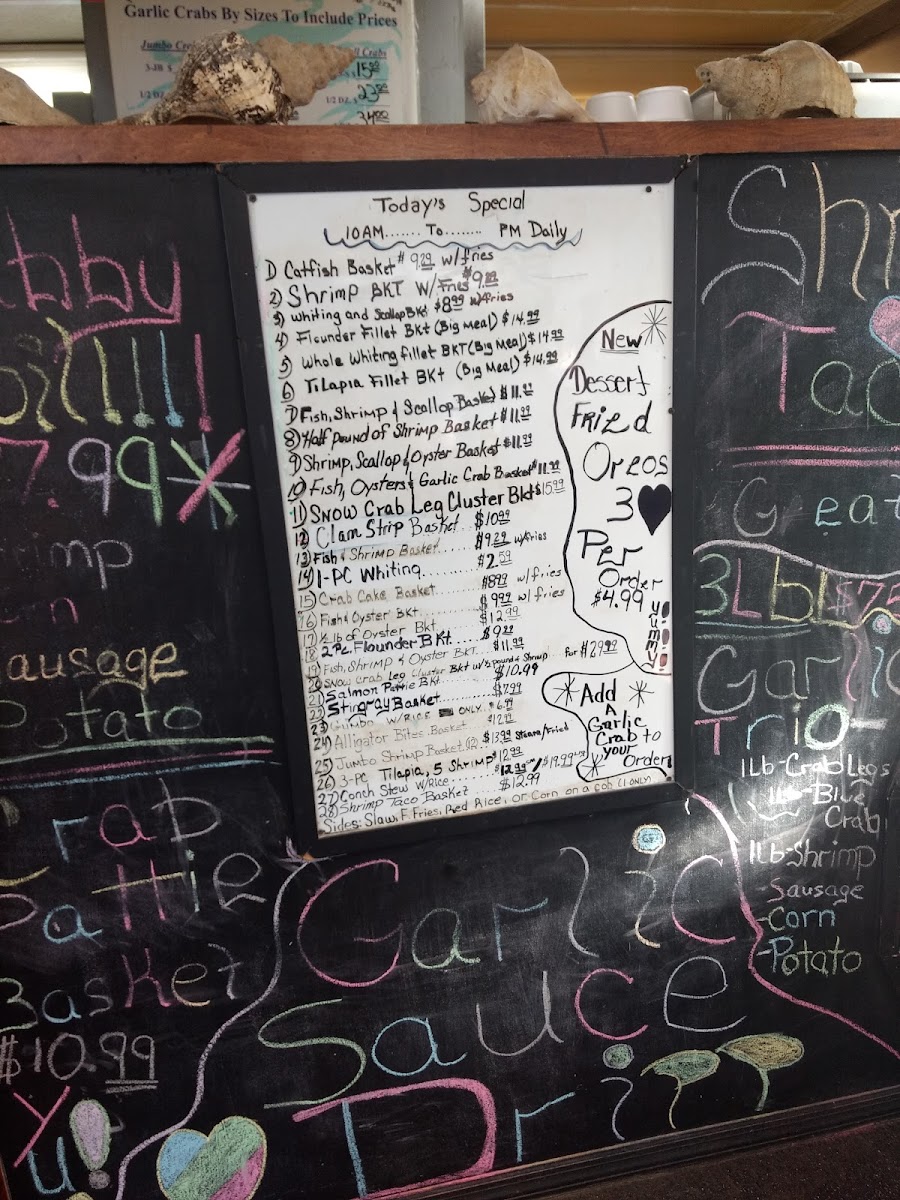 Garlic Crabs By Sizes To Include Prices
Jumbo
Crabs
3-
$15
1/2 DZ
1/2 DZ. $23
24.00
Today's Special
10AM....... To........ PM Daily
1) Catfish Basket $9.29 w/fries
2) Shrimp BKT W/Fries $9.29
3) Whiting and Scallop Bkt $8.99 w/fries
4) Flounder Fillet BKt (Big Meal) $14.99
5) Whole Whiting fillet BKT (Big Meal) $14.99
6) Tilapia Fillet BKt (Big Meal) $14.99
7) Fish, Shrimp & Scallop Basket $11.99
8) Half pound of Shrimp Basket $11.99
9) Shrimp, Scallop & Oyster Basket $11.99
10) Fish, Oysters & Garlic Crab Basket $11.99
11) Snow Crab Leg Cluster Bkt $15.99
12) Clam Strip Basket $10.99
13) Fish & Shrimp Basket..... $9.29 w/fries
14) 1-PC Whiting.......... $2.59
15) Crab Cake Basket $8.99 w/ fries
16) Fish & Oyster BKT 9.99 w/ fries
17) 1/2 lb of Oyster Bkt $12.99
18 2 Pc. Flounder BKt. $9
19) Fish, Shrimp & Oyster BKT. $11.99
20 Snow Crab Leg Cluster Bkt w/ 1/2 pound of Shrimp For $29.99
21) Salmon Pattie BKt $10.99
22) Stingray Basket $7.99
23) Gumbo w/RICE ONLY 6.99
24) Alligator Bites Basket $12.99
25) Jumbo Shrimp Basket (12) $13.99 Steam/Fried
26) 3-PC Tilapia, 5 Shrimp $12.99
27) Conch Stew w/Rice $12.99 / $19.99
28) Shrimp Taco Basket $12.99
Sides: Slaw, F. Fries, Red Rice, or Corn on a Cob (1 only
New
Dessert
Frizd
Oreos
3
Per
Order
$4.99
Yummy!!!
Add
A
Garlic
Crab to
your
Order
abby
oil!!!!
7.99
rimp
rn
Sausage
Potato
rap
Pattie
Basket
$10.99
Yu!
Garlic
Sauce
Drip
Shr
Tac
Great
3Lbl $75
Garlic
Trio-
1Lb-Crab Legs
1Lb-Blue
Crab
1Lb-Shrimp
-Sausage
-Corn
-Potato